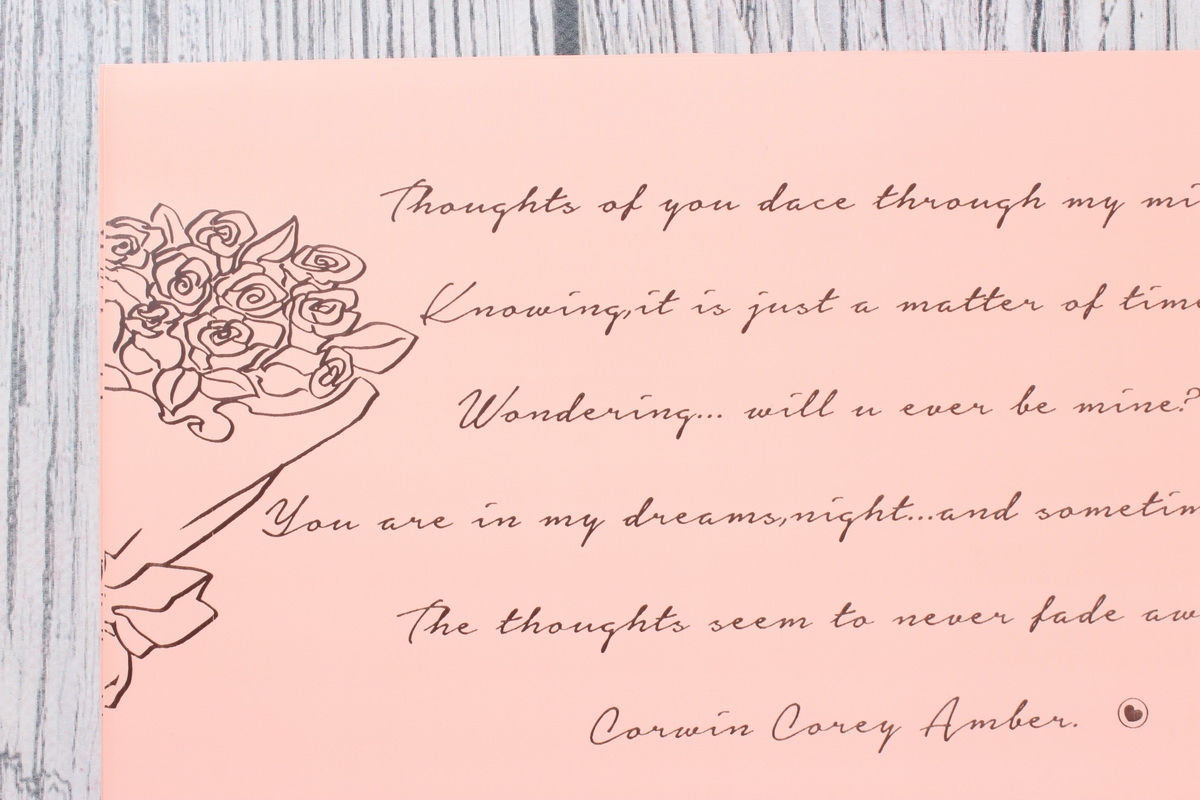 Thoughts of you dace through my mi
Knowing,it is just a matter of time
Wondering... will u ever be mine?
You are in my dreams,night...and sometim
The thoughts seem to never fade aw
Corwin Corey Amber.